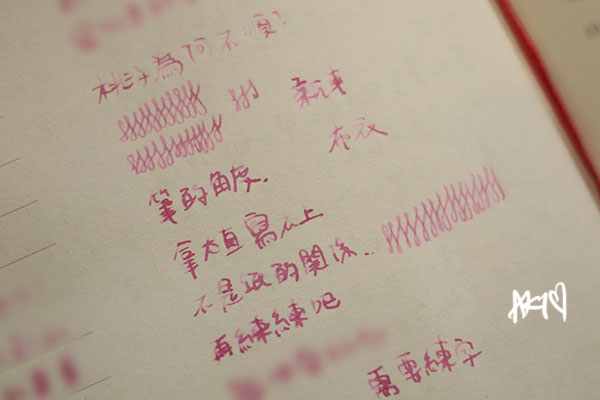 桃汁為何不順？
布衣
筆的角度.
拿太直寫不上
不是紙的關係..
再練練吧
需要練字